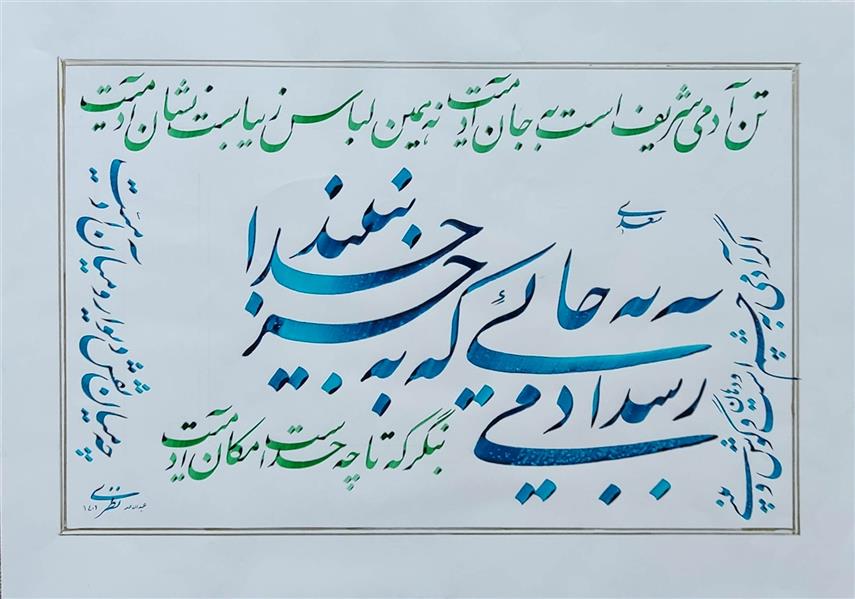 تن آدمی شریف است به جان آدمیت نه همین لباس زیباست نشان آدمیت
اگر آدمی به چشم است و دهان و گوش و بینی
چه میان نقش دیوار و میان آدمیت
سعدی
رسد آدمی به جائی که به جز خدا نبیند
بنگر که تا چه حد است مکان آدمیت
نظری
۱۴۰۱